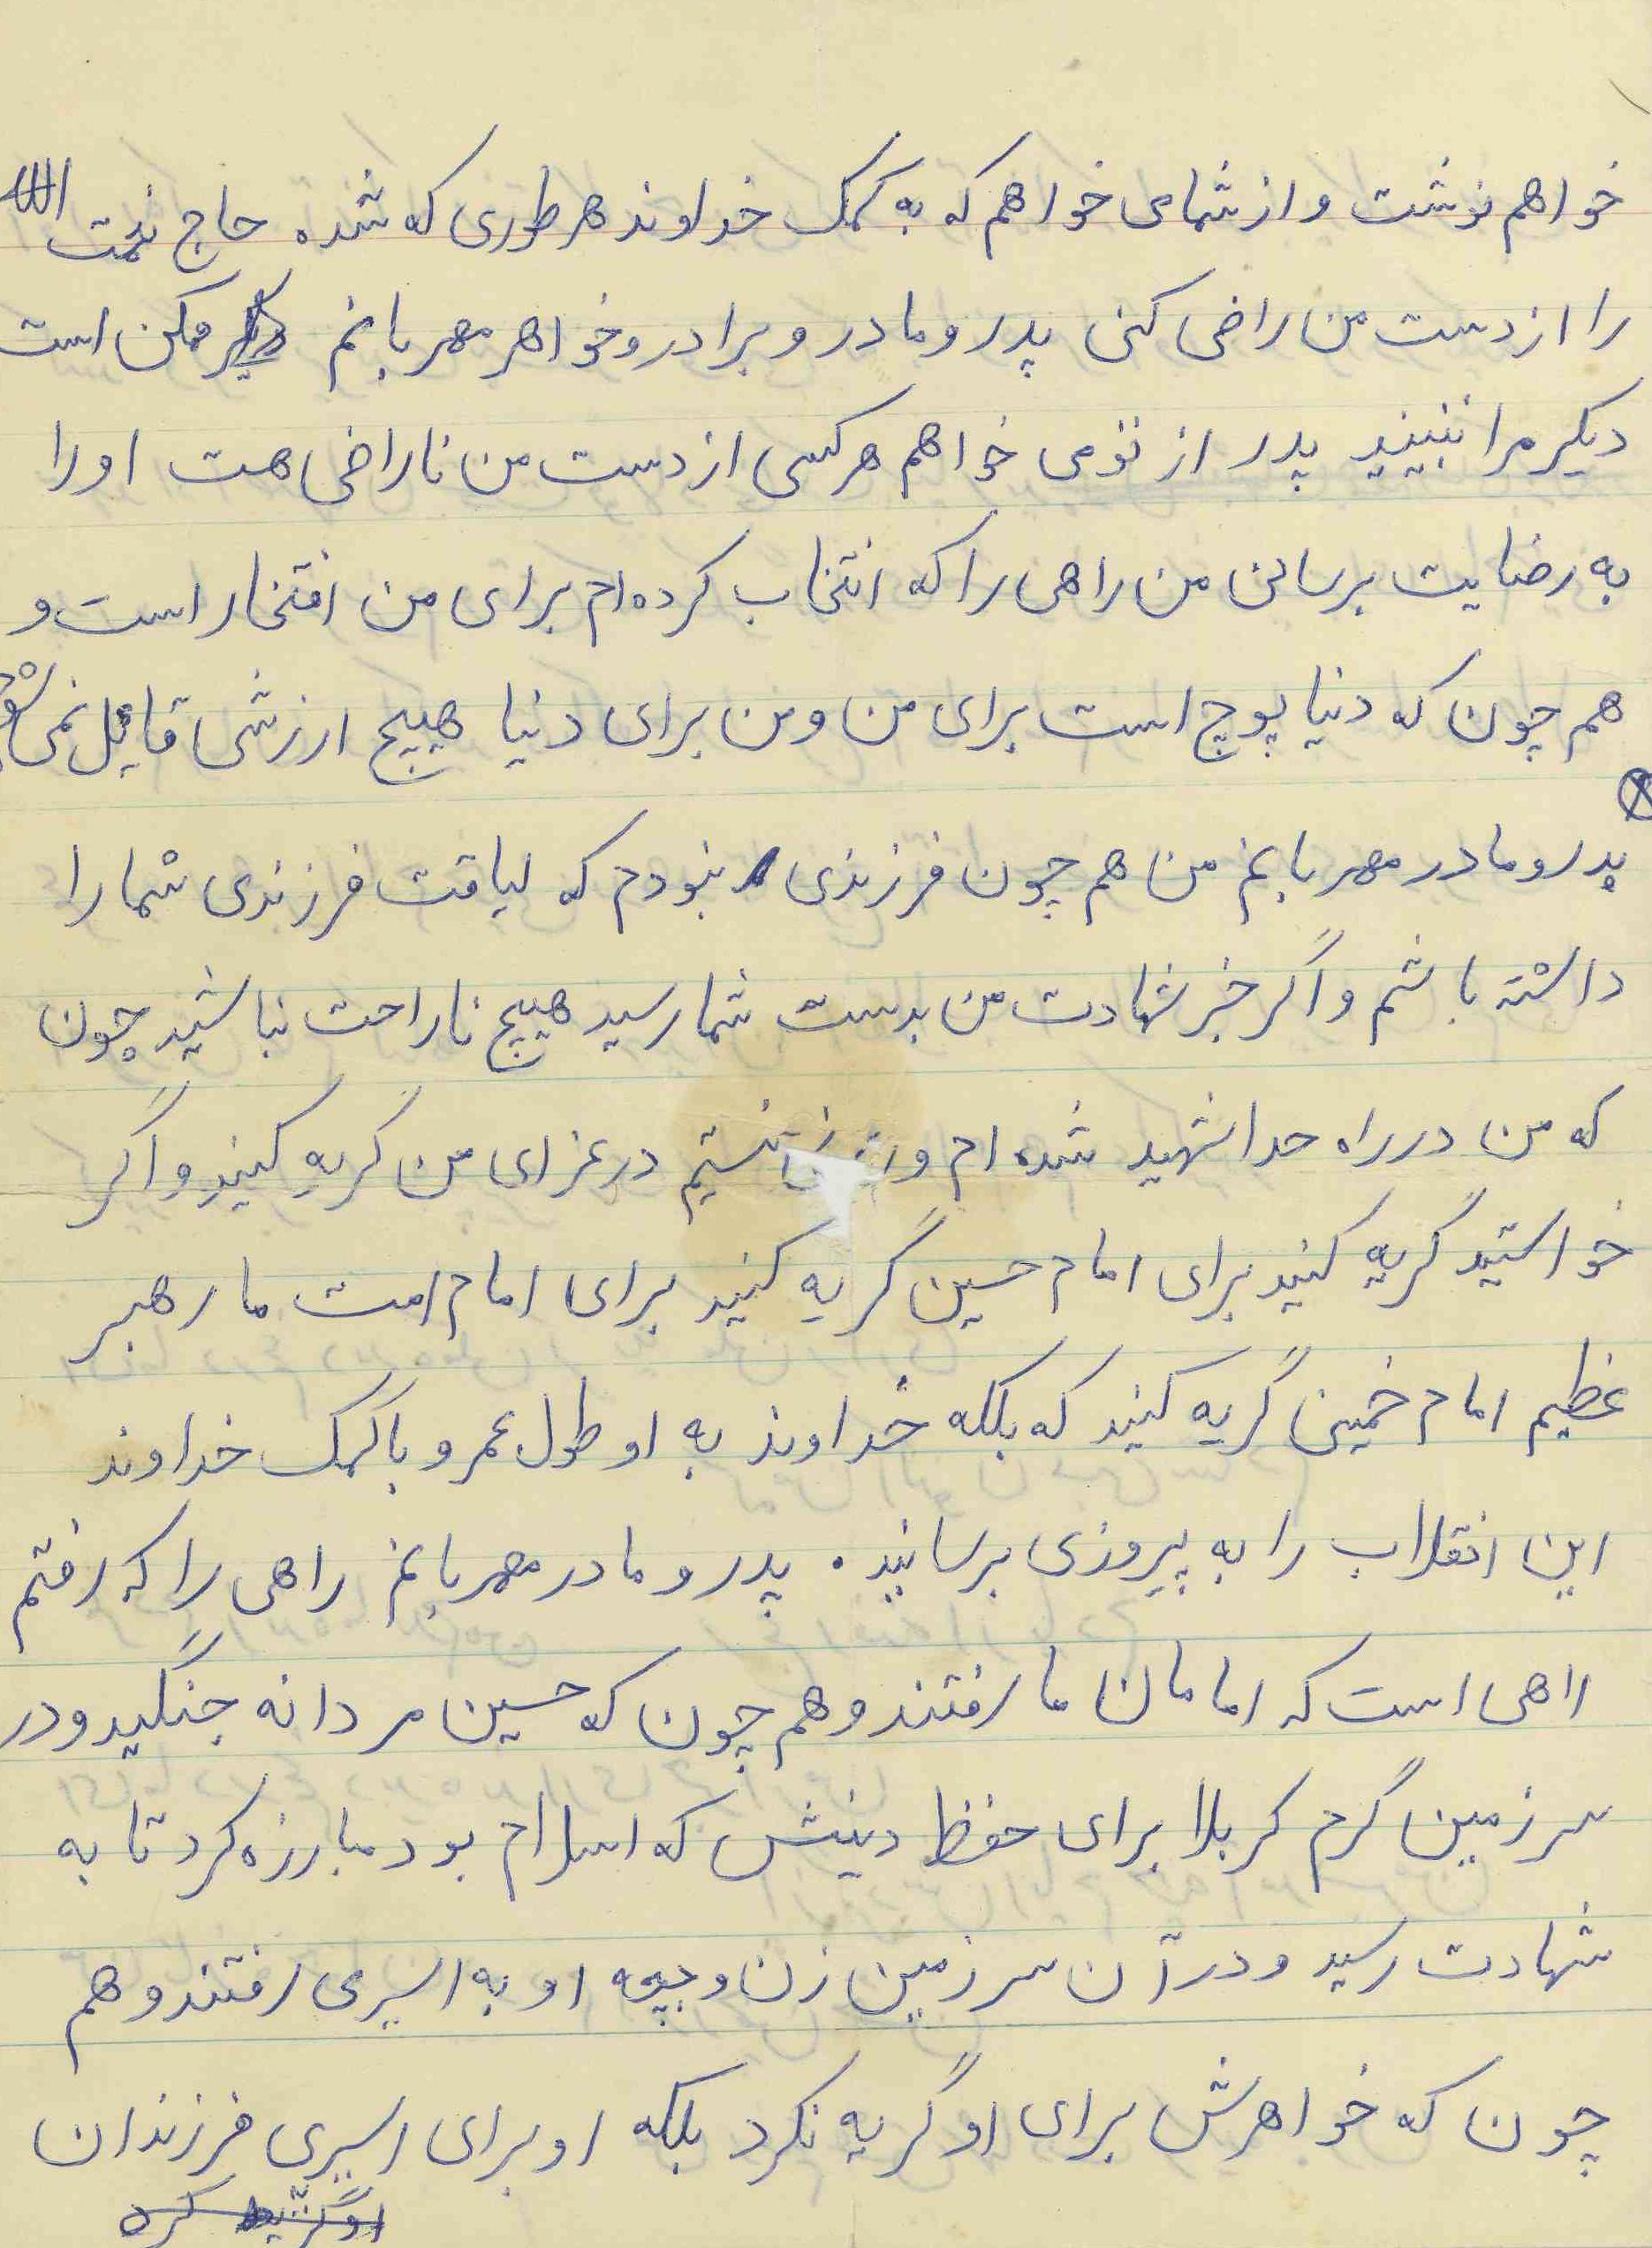 خواهم نوشت و از شما می خواهم که به کمک خداوند هر طوری که شده حاج نعمت الله
را از دست من راضی کنی پدر و مادر و برادر و خواهر مهربانم ممکن است
دیگر مرا نبینید پدر از تو می خواهم هر کسی از دست من ناراضی هست او را
به رضایت برسانی من راهی را که انتخاب کرده ام برای من افتخار است و
هم چون که دنیا پوچ است برای من و من برای دنیا هیچ ارزشی قایل نمی
پدر و مادر مهربانم من هم چون فرزندی نبودم که لیاقت فرزندی شما را
داشته باشم و اگر خبر شهادت من بدست شما رسید هیچ ناراحت نباشید چون
که من در راه خدا شهید شده ام و در عزای من گریه کنید و اگر
خواستید گریه کنید برای امام حسین گریه کنید برای امام امت ما رهبر
عظیم امام خمینی گریه کنید که بلکه خداوند به او طول عمر و با کمک خداوند
این انقلاب را به پیروزی برسانید . پدر و مادر مهربانم راهی را که رفتم
راهی است که امامان ما رفتند و هم چون که حسین مردانه جنگید و در
سرزمین گرم کربلا برای حفظ دینش که اسلام بود مبارزه کرد تا به
شهادت رسید و در آن سرزمین زن و بچه او به اسیری رفتند و هم
چون که خواهرش برای او گریه نکرد بلکه او برای اسیری فرزندان